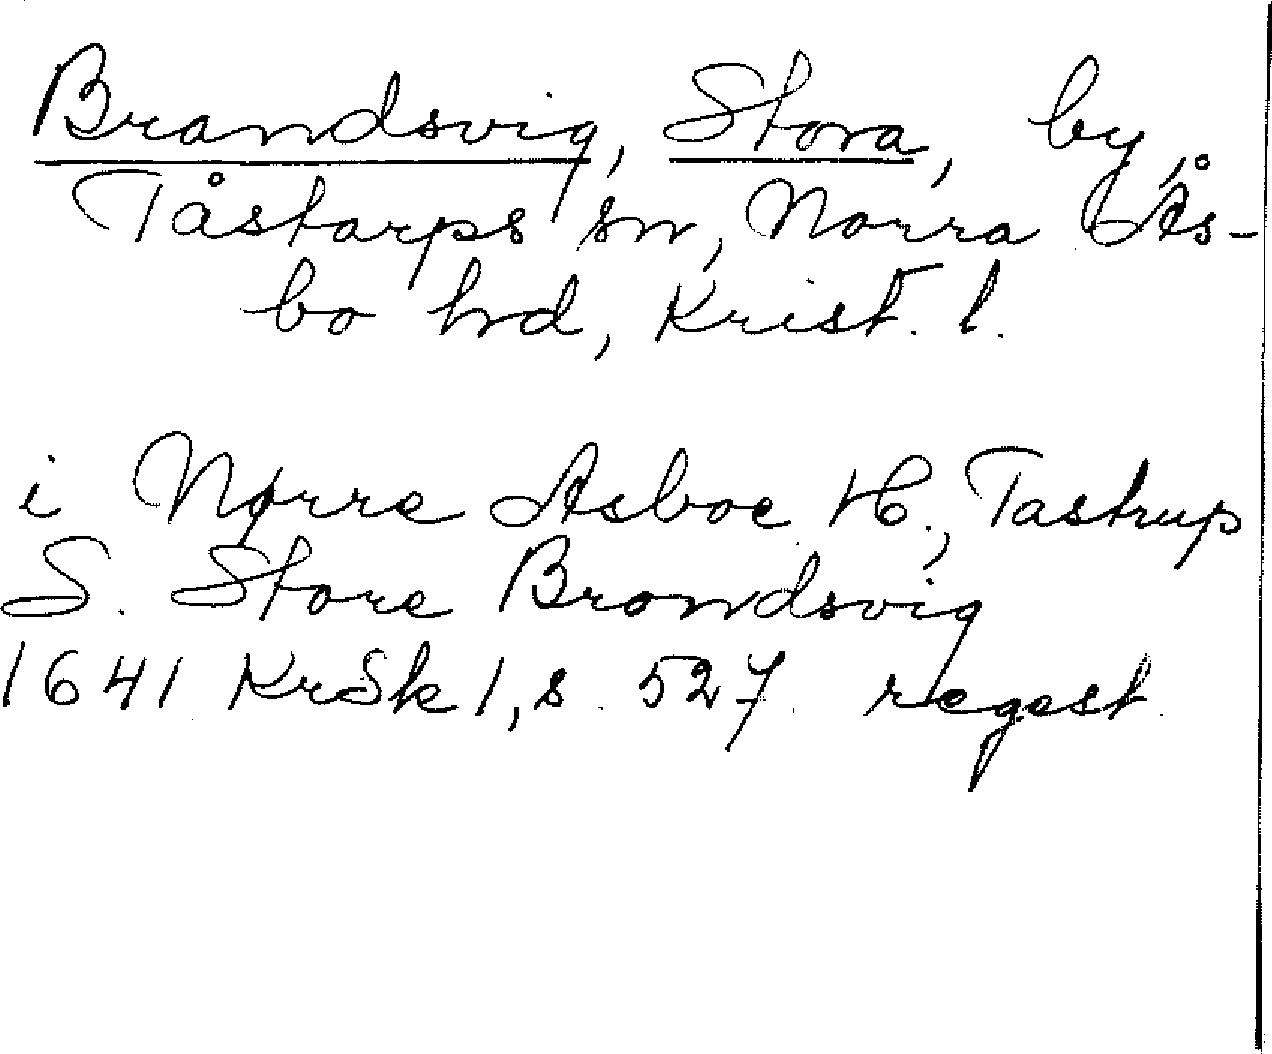 Brandsvig, Stora, by,
Tåstarps sn, Norra Ås-
bo hd, Krist. l.
i Nørre Asboe H., Tastrup
S. Store Brandsvig
1641 KrSk 1, s. 527. regest.